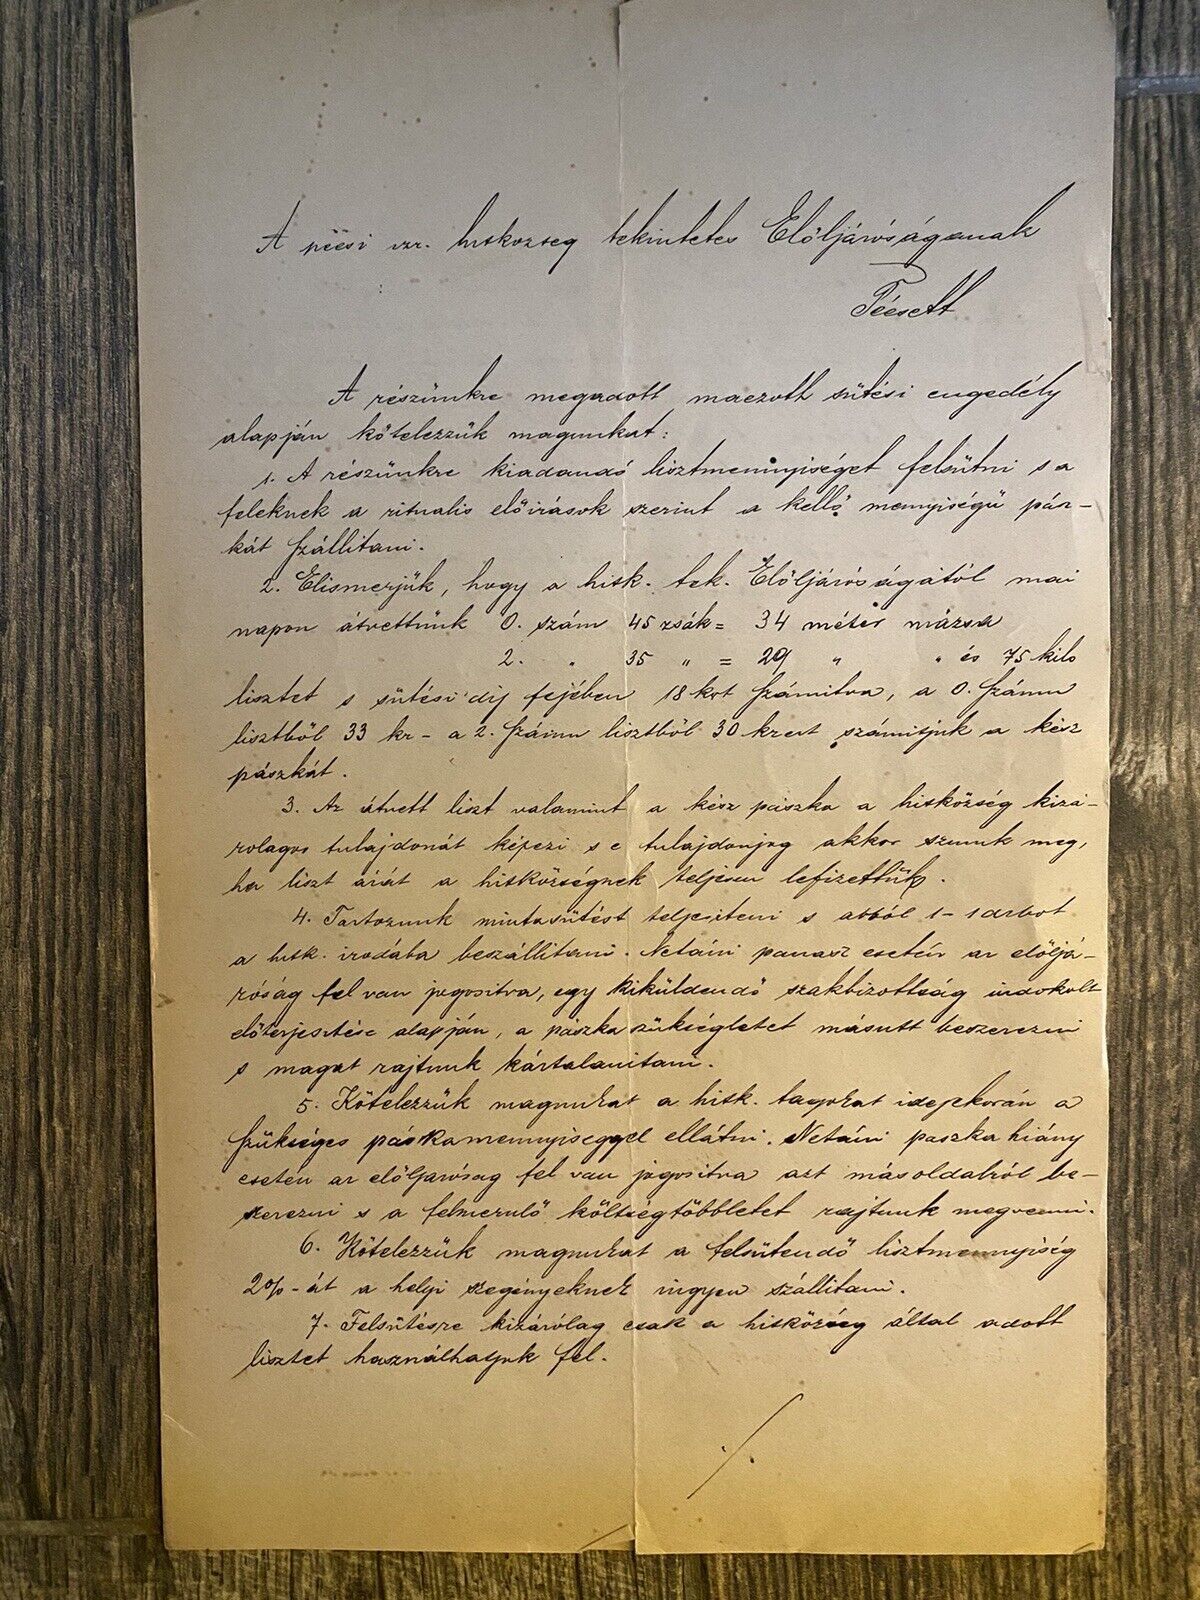 A pécsi izr. hitközség tekintetes Elöljáróságának
Pécsett
A részünkre megadott maczoth sütési engedély
alapján kötelezzük magunkat:
1. A részünkre kiadandó lisztmennyiséget felsütni s a
feleknek a rituális előirások szerint a kellő mennyiségü pász-
kát szállitani.
2. Elismerjük, hogy a hitk. tek. Elöljáróságától mai
napon átvettünk 0. szám 45 zsák = 34 méter mázsa
2. " 35 " = 29 " " és 75 kiló
lisztet s sütési dij fejében 18 krt számitva, a 0. számu
lisztböl 33 kr - a 2. számu lisztböl 30 krert számitjuk a kész
pászkát.
3. Az átvett liszt valamint a kész pászka a hitközség kizá-
rolagos tulajdonát képezi s e tulajdonjog akkor szünik meg,
ha liszt árát a hitközségnek teljesen lefizettük.
4. Tartozunk mintasütést teljesiteni s abból 1-1 darbot
a hitk. irodába beszállitani. Netáni panasz esetén az elöljá-
róság fel van jogositva, egy kiküldendő szakbizottság indokolt
előterjesztése alapján, a pászka szükségletet másutt beszerezni
s magát rajtunk kártalanitani.
5. Kötelezzük magunkat a hitk. tagokat idejekorán a
szükséges pászkamennyiséggel ellátni. Netáni paszka hiány
esetén az elöljaróság fel van jogositva azt másoldalról be-
szerezni s a felmerulő költségtöbbletet rajtunk megvenni.
6. Kötelezzük magunkat a felsütendő lisztmennyiség
2%-át a helyi szegényeknek ingyen szállitani.
7. Felsütésre kizárólag csak a hitközség által adott
lisztet használhatjuk fel.
./.